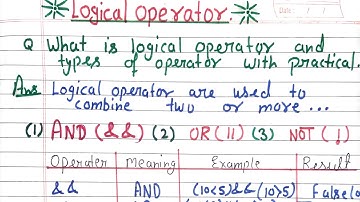 Logical Operator.
Date : / /
Q What is logical operator and
types of operator with practical.
Ans Logical operator are used to
combine two or more ...
(1) AND (&&) (2) OR (||) (3) NOT (!)
Operater Meaning Example Result
&& AND (10<5)&&(10>5) False(0